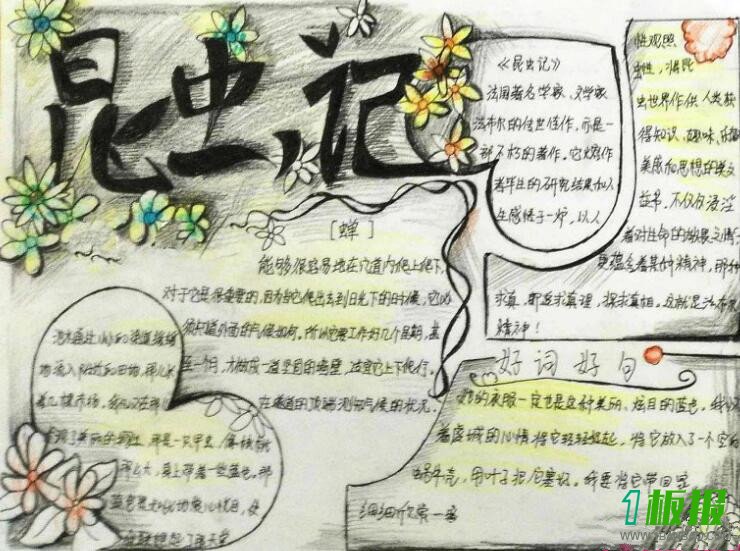 昆虫记
《昆虫记》
法国著名学家、文学家
法布尔的传世佳作，亦是一
部不朽的著作。它熔作
者毕生的研究结果和人
生感悟于一炉，以人
性观照
虫性，将昆
虫世界作供人类获
得知识、趣味、
美感和思想的美文
益书，不仅仅浸淫
着对生命的敬畏之情
更蕴含着某种精神，那种
求真，即追求真理，探求真相。这就是法布尔
精神！
［蝉］
能够很容易地在穴道内爬上爬下，
对于它是很重要的，因为当它爬出去到日光下的时候，它必
须知道外面的气候如何。所以它要工作好几个星期，甚
至一个月，才做成一道坚固的墙壁，适宜它上下爬行。
在隧道的顶端 测知气候的状况。
池水通过小小的渠道缓缓
地流入附近的田地，那儿长
着几棵 我就在那儿
发现了美丽的 那是一只甲虫，像核桃
那么大，身上带着一些蓝色。那
蓝色是 使
联想起了 天堂
好词好句
的衣服一定也是这种美丽，炫目的蓝色，我怀
着虔诚的心情将它轻轻捡起，将它放入了一个空的
蜗牛壳，用叶子把它塞好。我要将它带回家，
细细欣赏一番
1板报